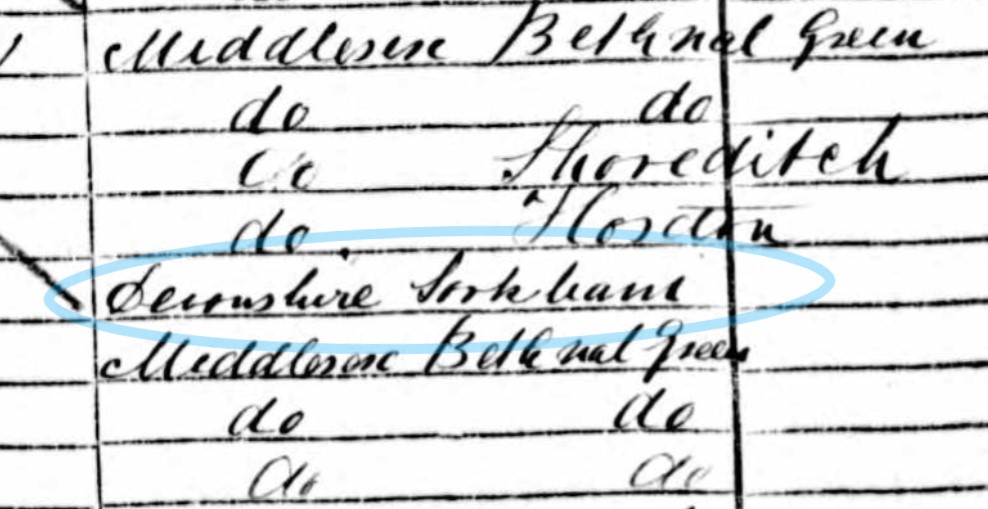 Middlesex Bethnal Green
do do
do Shoreditch
do Hoxton
Devonshire
Middlesex Bethnal Green
do do
do do